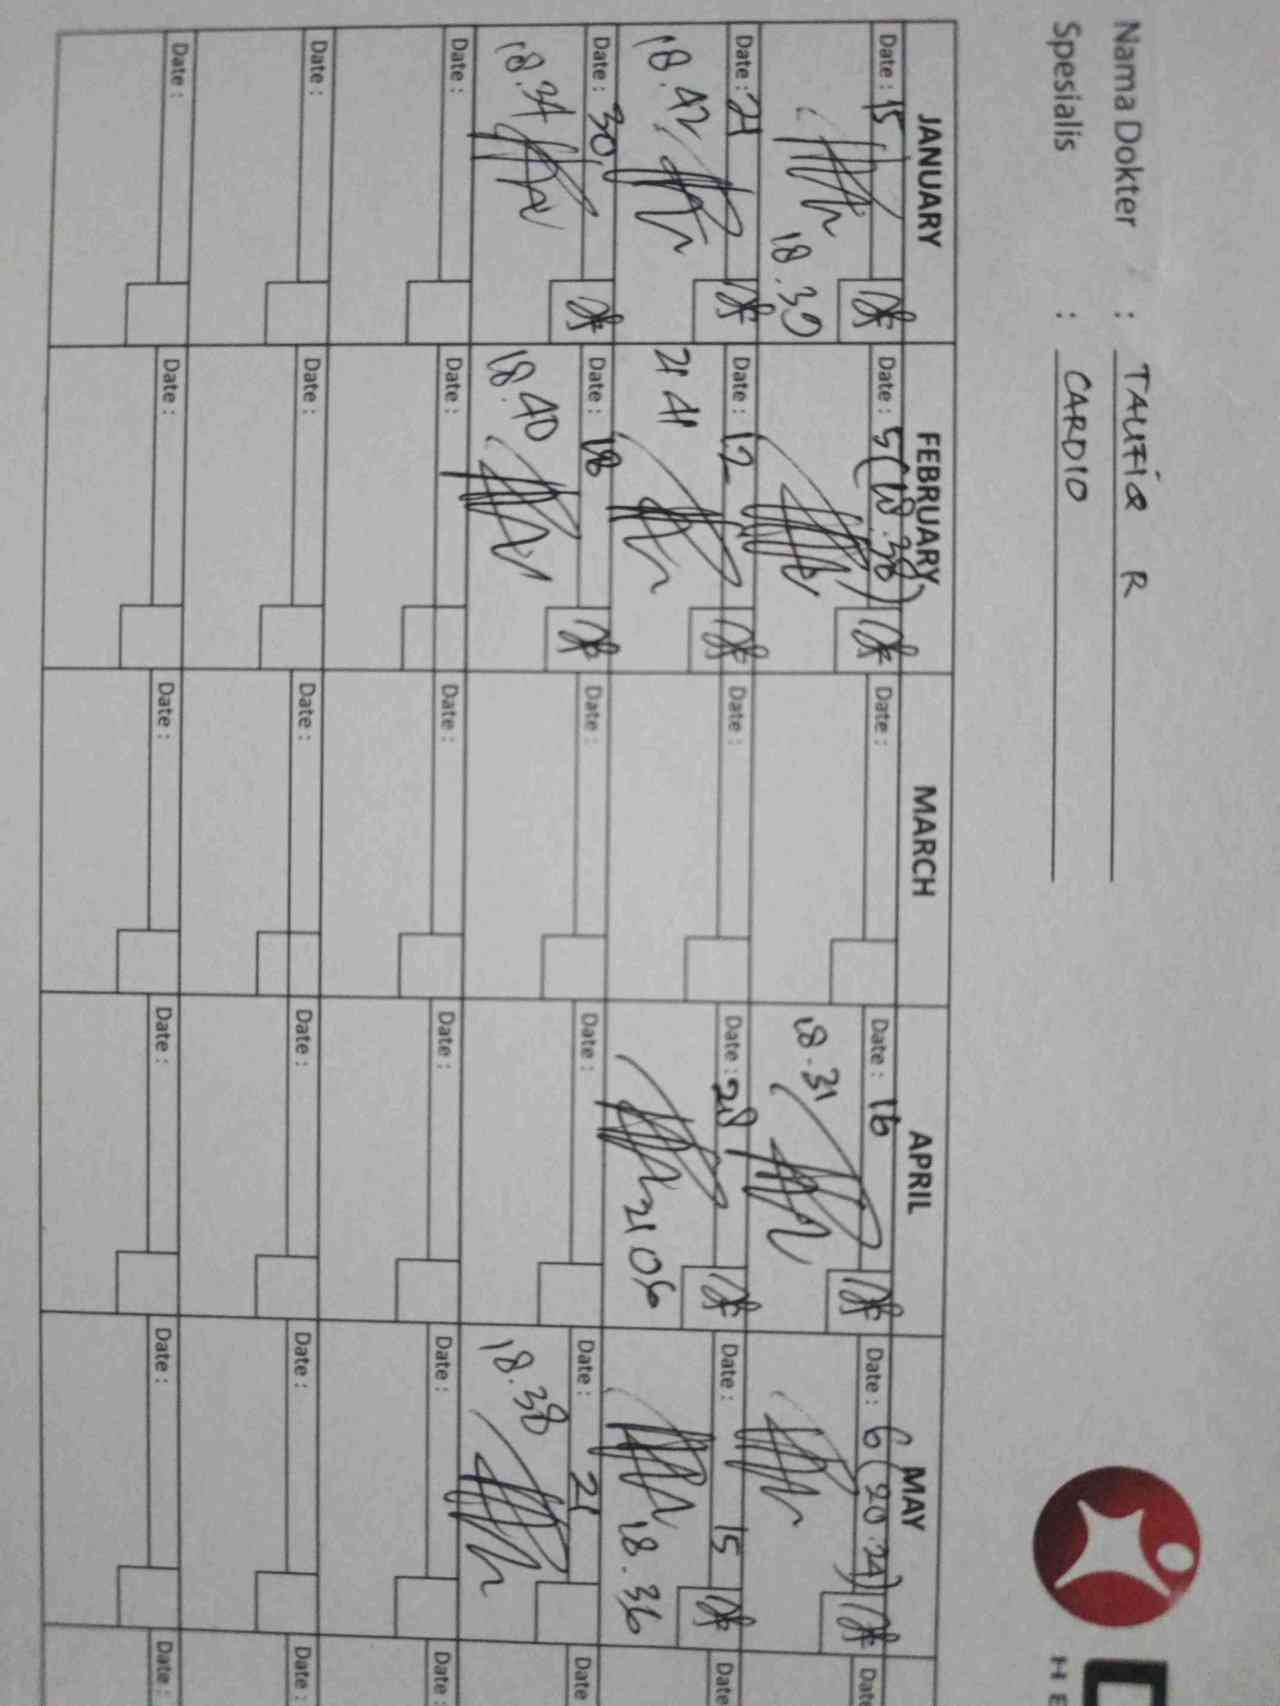 Nama Dokter : TAUFIQ R
Spesialis : CARDIO
JANUARY FEBRUARY MARCH APRIL MAY
Date : 15 Date : 5 (18.38) Date : Date : 16 Date : 6 (20.24) Date
18.30 18.31
Date : 21 Date : 12 Date : Date : 28 Date : 15 Date
18.42 21 41 21 06 18.36
Date : 30 Date : 18 Date : Date : Date : 21 Date
18.34 18.40 18.38
Date : Date : Date : Date : Date : Date :
Date : Date : Date : Date : Date : Date :
Date : Date : Date : Date : Date : Date :